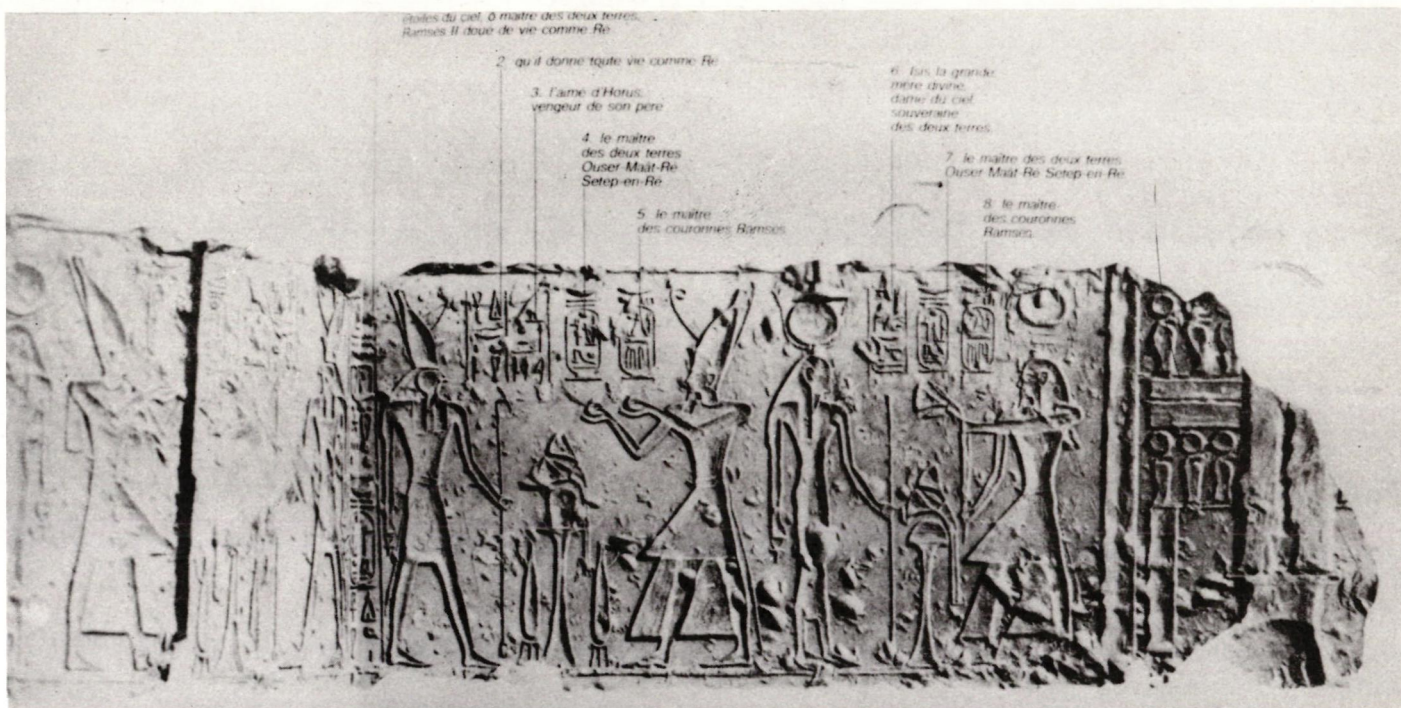 étoiles du ciel, ô maître des deux terres,
Ramsès II doué de vie comme Ré
2. qu'il donne toute vie comme Ré
3. l'aimé d'Horus,
vengeur de son père
4. le maître
des deux terres
Ouser-Maât-Ré
Setep-en-Ré
5. le maître
des couronnes Ramsès
6. Isis la grande,
mère divine,
dame du ciel,
souveraine
des deux terres.
7. le maître des deux terres
Ouser-Maât-Ré Setep-en-Ré
8. le maître
des couronnes
Ramsès.